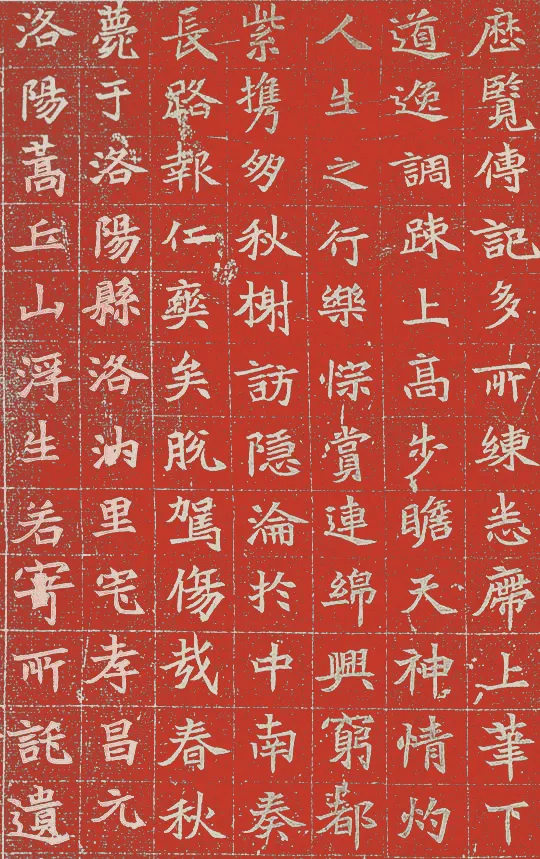 歷覽傳記多所練悉席上筆下
道逸調踈上高步瞻天神情灼
人生之行樂悰賞連綿興窮都
紫攜多秋榭訪隱淪於中南奏
長路報仁爽矣脫駕傷哉春秋
薨于洛陽縣洛汭里宅孝昌元
洛陽蒿丘山浮生若寄所託遺